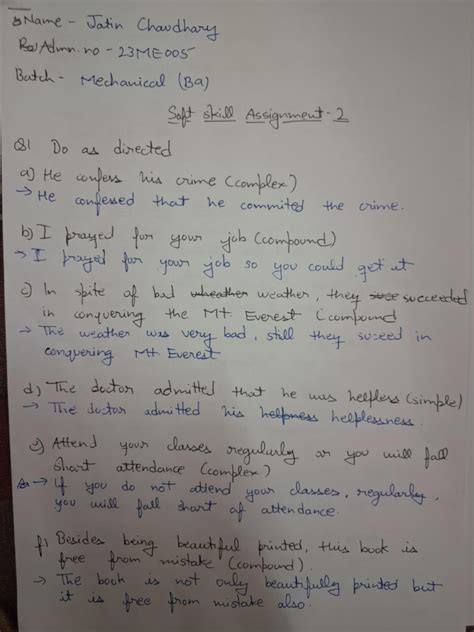 Name - Jatin Chaudhary
Admn. no - 23ME005
Batch - Mechanical (B2)
Soft Skill Assignment - 2
Q1 Do as directed
a) He confess his crime (complex)
→ He confessed that he commited the crime.
b) I prayed for your job (compound)
→ I prayed for your job so you could get at
c) In spite of bad wheather weather, they suce succeeded
in conquering the Mt Everest (compound
→ The weather was very bad, still they suceed in
conquering Mt Everest
d) The doctor admitted that he was helpless (simple)
→ The doctor admitted his helpness helplessness.
e) Attend your classes regularly or you will fall
short attendance (complex)
→ If you do not attend your classes, regularly,
you will fall short of attendance.
f) Besides being beautiful printed, this book is
free from mistake (compound).
→ The book is not only beautifully printed but
it is free from mistake also.